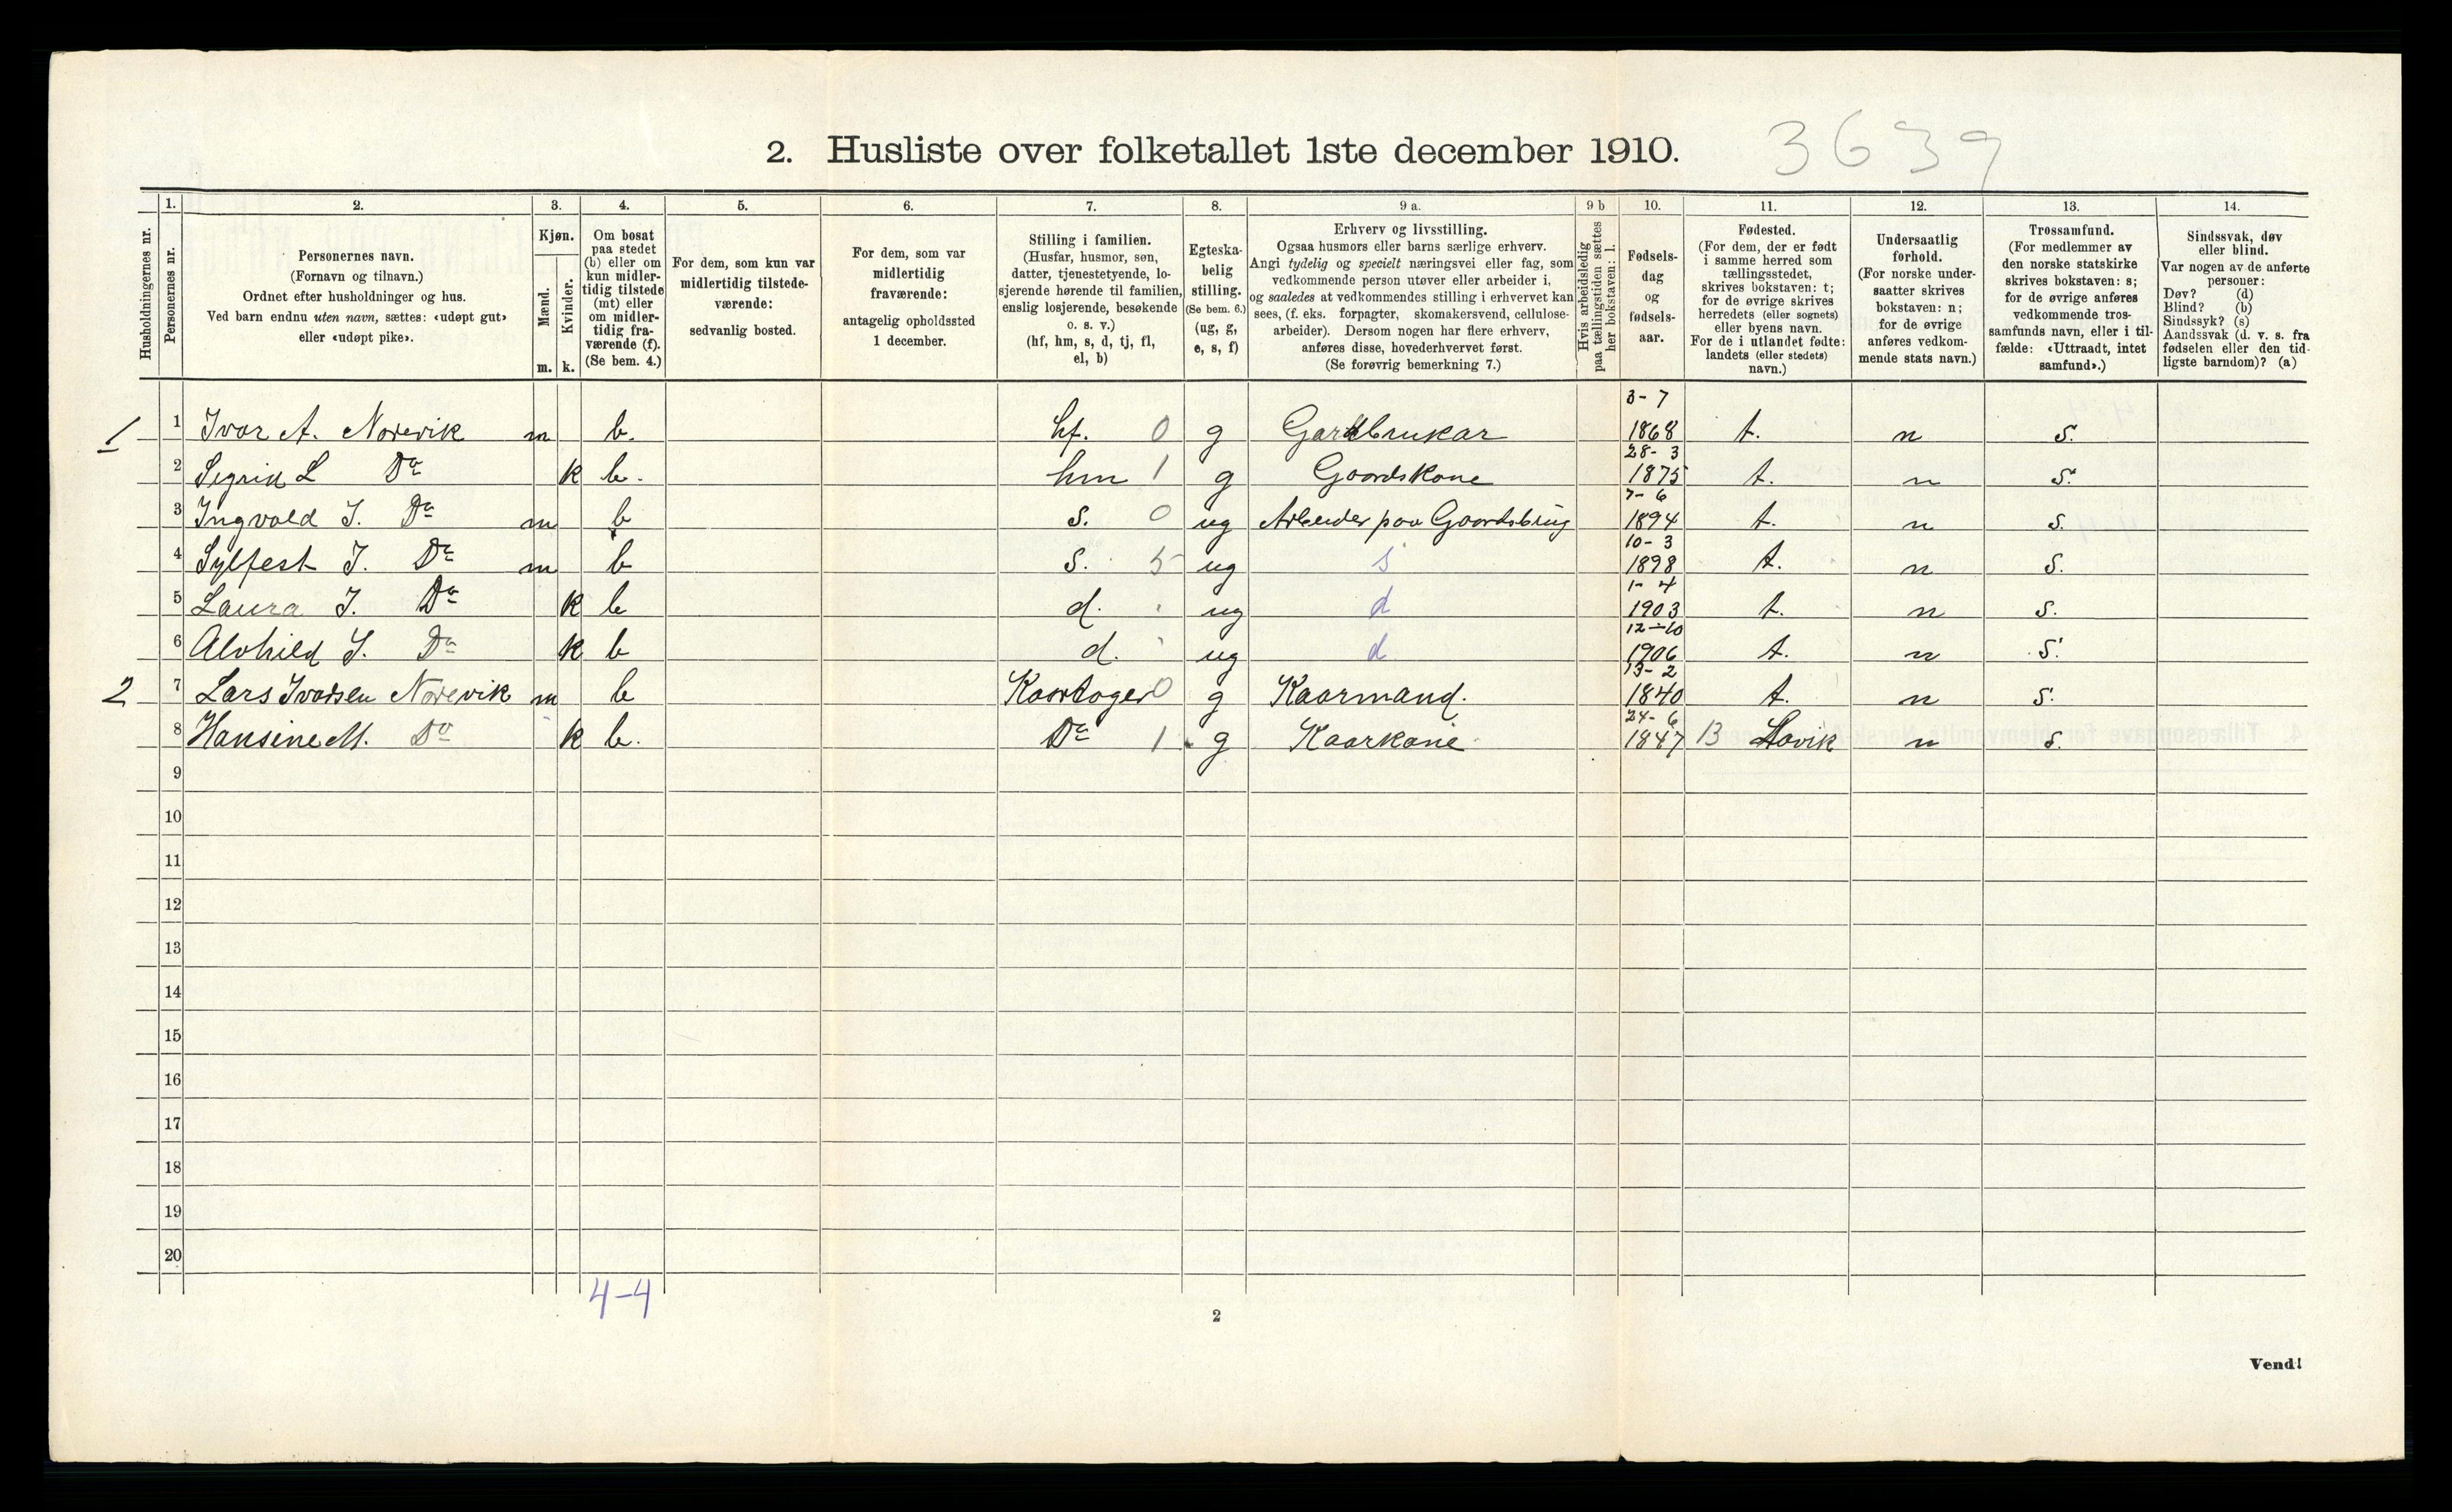 2. Husliste over folketallet 1ste december 1910. 3639
Husholdningernes nr.
1. Personernes nr.
2. Personernes navn.
(Fornavn og tilnavn.)
Ordnet efter husholdninger og hus.
Ved barn endnu uten navn, sættes: «udøpt gut»
eller «udøpt pike».
3. Kjøn.
Mænd. m.
Kvinder. k.
4. Om bosat
paa stedet
(b) eller om
kun midler-
tidig tilstede
(mt) eller
om midler-
tidig fra-
værende (f).
(Se bem. 4.)
5. For dem, som kun var
midlertidig tilstede-
værende:
sedvanlig bosted.
6. For dem, som var
midlertidig
fraværende:
antagelig opholdssted
1 december.
7. Stilling i familien.
(Husfar, husmor, søn,
datter, tjenestetyende, lo-
sjerende hørende til familien,
enslig losjerende, besøkende
o. s. v.)
(hf, hm, s, d, tj, fl,
el, b)
8. Egteska-
belig
stilling.
(Se bem. 6.)
(ug, g,
e, s, f)
9 a. Erhverv og livsstilling.
Ogsaa husmors eller barns særlige erhverv.
Angi tydelig og specielt næringsvei eller fag, som
vedkommende person utøver eller arbeider i,
og saaledes at vedkommendes stilling i erhvervet kan
sees, (f. eks. forpagter, skomakersvend, cellulose-
arbeider). Dersom nogen har flere erhverv,
anføres disse, hovederhvervet først.
(Se forøvrig bemerkning 7.)
9 b Hvis arbeidsledig
paa tællingstiden sættes
her bokstaven: l.
10. Fødsels-
dag
og
fødsels-
aar.
11. Fødested.
(For dem, der er født
i samme herred som
tællingsstedet,
skrives bokstaven: t;
for de øvrige skrives
herredets (eller sognets)
eller byens navn.
For de i utlandet fødte:
landets (eller stedets)
navn.)
12. Undersaatlig
forhold.
(For norske under-
saatter skrives
bokstaven: n;
for de øvrige
anføres vedkom-
mende stats navn.)
13. Trossamfund.
(For medlemmer av
den norske statskirke
skrives bokstaven: s;
for de øvrige anføres
vedkommende tros-
samfunds navn, eller i til-
fælde: «Uttraadt, intet
samfund».)
14. Sindssvak, døv
eller blind.
Var nogen av de anførte
personer:
Døv? (d)
Blind? (b)
Sindssyk? (s)
Aandssvak (d. v. s. fra
fødselen eller den tid-
ligste barndom)? (a)
1 1 Ivar A. Norevik m b. hf. 0 g Gardbrukar 3-7 1868 t. n s.
2 Sigrid L Do k b. hm 1 g Gaardskone 28-3 1875 t. n s.
3 Ingvald I. Do m b s. 0 ug Arbeider paa Gaardsbrug 7-6 1894 t. n s.
4 Sylfest I. Do m b s. 5 ug s 10-3 1898 t. n s.
5 Laura I. Do k b d. ug d 1-4 1903 t. n s.
6 Alvhild I. Do k b d. ug d 12-10 1906 t. n s.
2 7 Lars Ivarsen Norevik m b Kaartager 0 g Kaarmand. 13-2 1840 t. n s.
8 Hansine M. Do k b. Do 1 g Kaarkone 24-6 1847 13 Lavik n s.
9
10
11
12
13
14
15
16
17
18
19
20
4-4
2
Vend!